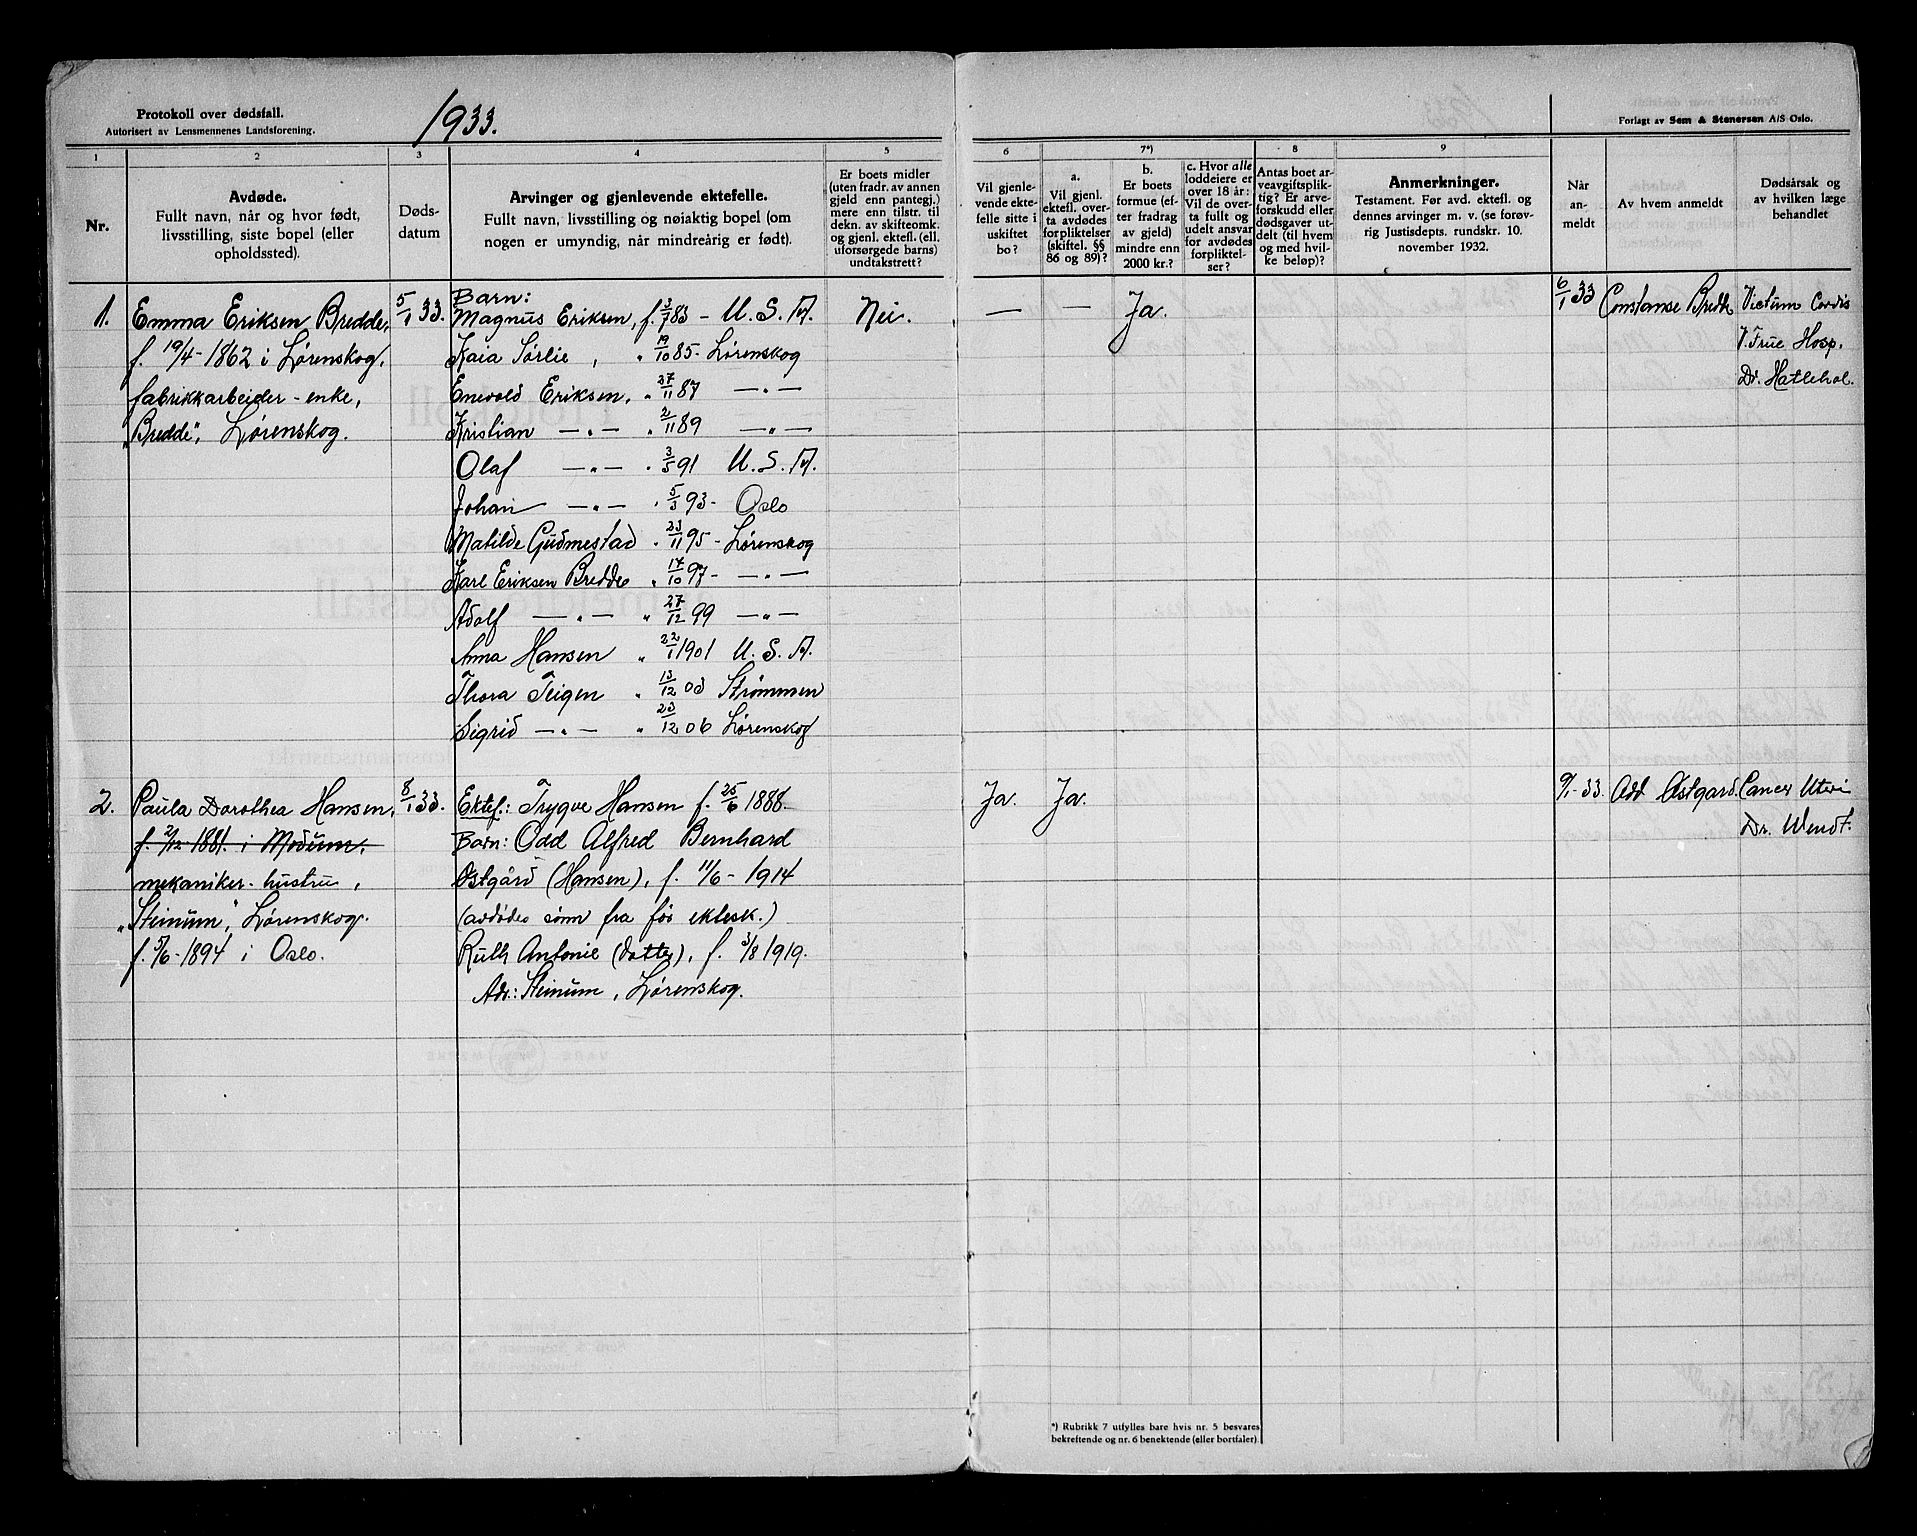 Protokoll over dødsfall.
Autorisert av Lensmennenes Landsforening.
1933.
Forlagt av Sem & Stenersen A/S Oslo.
1
2
3
4
5
6
7*)
8
9
Nr.
Avdøde.
Fullt navn, når og hvor født,
livsstilling, siste bopel (eller
opholdssted).
Døds-
datum
Arvinger og gjenlevende ektefelle.
Fullt navn, livsstilling og nøiaktig bopel (om
nogen er umyndig, når mindreårig er født).
Er boets midler
(uten fradr. av annen
gjeld enn pantegj.)
mere enn tilstr. til
dekn. av skifteomk.
og gjenl. ektefl. (ell.
uforsørgede barns)
undtakstrett?
Vil gjenle-
vende ekte-
felle sitte i
uskiftet
bo?
a.
Vil gjenl.
ektefl. over-
ta avdødes
forpliktelser
(skiftel. §§
86 og 89)?
b.
Er boets
formue (ef-
ter fradrag
av gjeld)
mindre enn
2000 kr.?
c. Hvor alle
loddeiere er
over 18 år:
Vil de over-
ta fullt og
udelt ansvar
for avdødes
forpliktel-
ser?
Antas boet ar-
veavgiftsplik-
tig? Er arve-
forskudd eller
dødsgaver ut-
delt (til hvem
og med hvil-
ke beløp)?
Anmerkninger.
Testament. Før avd. ektefl. og
dennes arvinger m. v. (se forøv-
rig Justisdepts. rundskr. 10.
november 1932.
Når
an-
meldt
Av hvem anmeldt
Dødsårsak og
av hvilken læge
behandlet
1.
Emma Eriksen Bredde,
f. 19/4-1862 i Lørenskog,
fabrikkarbeider-enke,
"Bredde", Lørenskog.
5/1 33.
Barn:
Magnus Eriksen, f. 3/7 83 - U.S.A.
Kaia Sørlie, " 19/10 85 - Lørenskog
Enevold Eriksen, " 27/11 87 — " —
Kristian — " — " 2/11 89 — " —
Olaf — " — " 3/5 91 U.S.A.
Johan — " — " 5/3 93 - Oslo
Matilde Gudmestad " 23/11 95 - Lørenskog
Karl Eriksen Bredde " 17/10 97 - — " —
Adolf — " — " 27/12 99 — " —
Anna Hansen " 22/1 1901 U.S.A.
Thora Teigen " 13/12 03 Strømmen
Sigrid — " — " 23/12 06 Lørenskog
Nei.
—
—
Ja.
6/1 33
Constanse Bredde
Victum Cordis
V. Frue Hosp.
Dr. Hatlehol.
2.
Paula Dorothea Hansen,
f. 2/12 1881. i Modum.
mekaniker-hustru,
"Steinum", Lørenskog.
f. 5/6-1894 i Oslo.
8/1 33.
Ektef.: Trygve Hansen f. 25/6 1888.
Barn: Odd Alfred Bernhard
Østgård (Hansen), f. 11/6-1914
(avdødes sønn fra før ektesk.)
Ruth Antonie (datter), f. 3/8 1919.
Adr.: Steinum, Lørenskog.
Ja.
Ja.
9/1-33.
Odd Østgard.
Cancer Uteri
Dr. Wendt.
*) Rubrikk 7 utfylles bare hvis nr. 5 besvares
bekreftende og nr. 6 benektende (eller bortfaler).